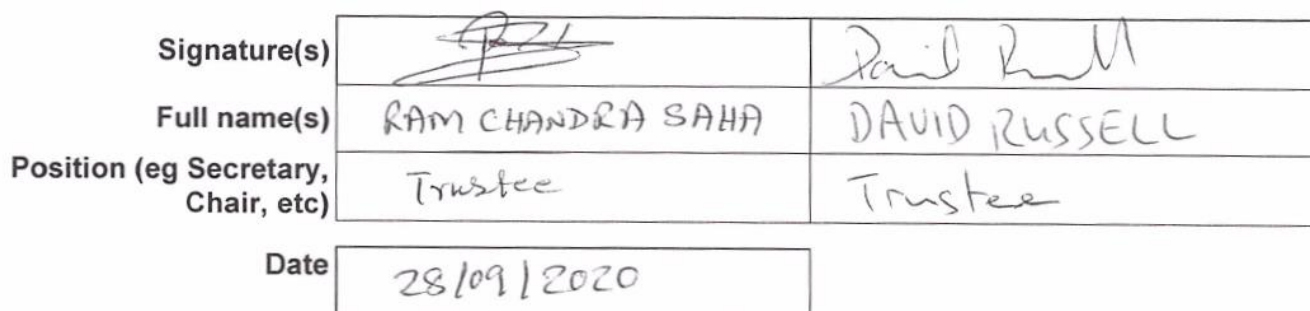 Signature(s) David Russell
Full name(s) RAM CHANDRA SAHA DAVID RUSSELL
Position (eg Secretary, Chair, etc) Trustee Trustee
Date 28/09/2020